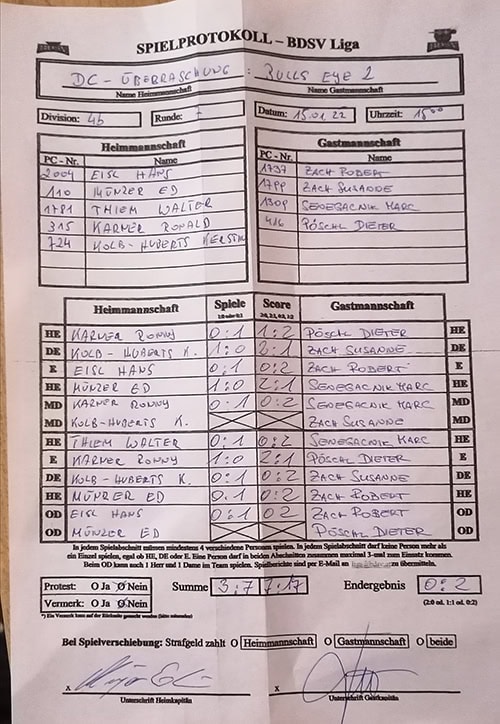 SPIELPROTOKOLL – BDSV Liga
DC-ÜBERRASCHUNG : BULLS EYE 2
Name Heimmannschaft Name Gastmannschaft
Division: 4b Runde: 7 Datum: 15.01.22 Uhrzeit: 15⁰⁰
Heimmannschaft Gastmannschaft
PC - Nr. Name PC - Nr. Name
2004 EISL HANS 1797 ZACH ROBERT
110 MÜNZER ED 1799 ZACH SUSANNE
1781 THIEM WALTER 1309 SENEGACNIK MARC
315 KARNER RONALD 416 PÖSCHL DIETER
724 KOLB-HUBERTS KERSTIN
Heimmannschaft Spiele Score Gastmannschaft
1:0 oder 0:1 2:0, 2:1, 0:2, 1:2
HE KARNER RONNY 0:1 1:2 PÖSCHL DIETER HE
DE KOLB-HUBERTS K. 1:0 2:1 ZACH SUSANNE DE
E EISL HANS 0:1 0:2 ZACH ROBERT E
HE MÜNZER ED 1:0 2:1 SENEGACNIK MARC HE
MD KARNER RONNY 0:1 0:2 SENEGACNIK MARC MD
MD KOLB-HUBERTS K. ZACH SUSANNE MD
HE THIEM WALTER 0:1 0:2 SENEGACNIK MARC HE
E KARNER RONNY 1:0 2:1 PÖSCHL DIETER E
DE KOLB-HUBERTS K. 0:1 0:2 ZACH SUSANNE DE
HE MÜNZER ED 0:1 0:2 ZACH ROBERT HE
OD EISL HANS 0:1 0 2 ZACH ROBERT OD
OD MÜNZER ED PÖSCHL DIETER OD
In jedem Spielabschnitt müssen mindestens 4 verschiedene Personen spielen. In jedem Spielabschnitt darf keine Person mehr als
ein Einzel spielen, egal ob HE, DE oder E. Eine Person darf in beiden Abschnitten zusammen maximal 3-mal zum Einsatz kommen.
Beim OD kann auch 1 Herr und 1 Dame im Team spielen. Spielberichte sind per E-Mail an zu übermitteln.
Protest: O Ja O Nein Summe 3:7 7:17 Endergebnis 0:2
Vermerk: O Ja O Nein (2:0 od. 1:1 od. 0:2)
*) Ein Vermerk kann auf der Rückseite gemacht werden
Bei Spielverschiebung: Strafgeld zahlt O Heimmannschaft O Gastmannschaft O beide
x x
Unterschrift Heimkapitän Unterschrift Gastkapitän